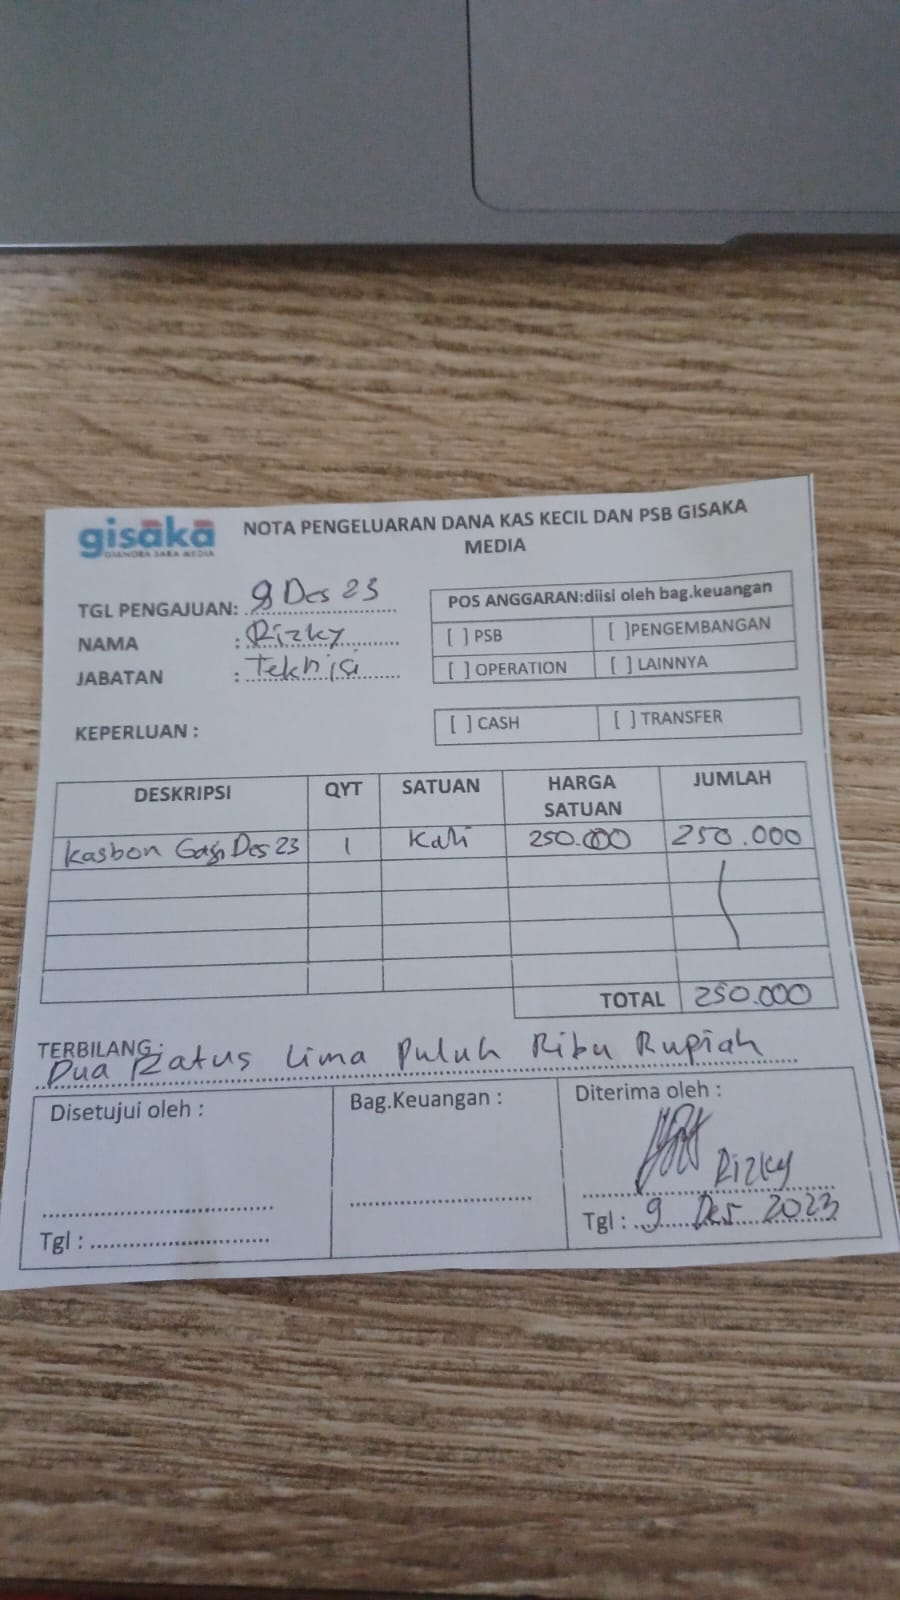 gisaka
GIANDRA SAKA MEDIA
NOTA PENGELUARAN DANA KAS KECIL DAN PSB GISAKA
MEDIA
TGL PENGAJUAN: 9 Des 23
NAMA : Rizky
JABATAN : Teknisi
POS ANGGARAN:diisi oleh bag.keuangan
[ ] PSB [ ]PENGEMBANGAN
[ ] OPERATION [ ] LAINNYA
KEPERLUAN :
[ ] CASH [ ] TRANSFER
DESKRIPSI QYT SATUAN HARGA SATUAN JUMLAH
Kasbon Gaji Des 23 1 Kali 250.000 250.000
TOTAL 250.000
TERBILANG :
Dua Ratus Lima Puluh Ribu Rupiah
Disetujui oleh : Bag.Keuangan : Diterima oleh :
Rizky
Tgl : Tgl : 9 Des 2023